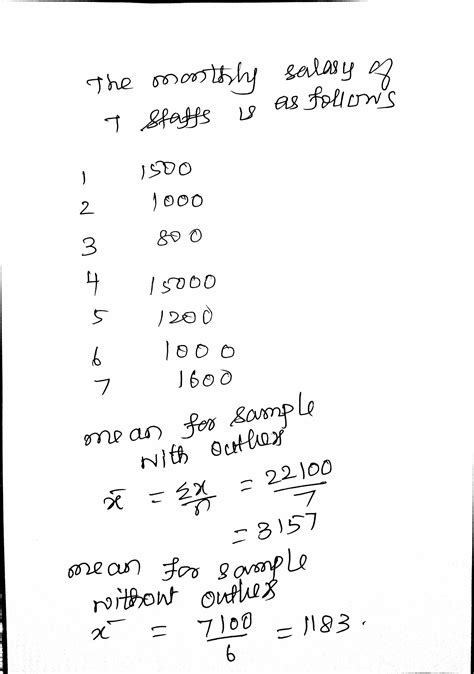 The monthly salary of
7 staffs is as follows
1 1500
2 1000
3 800
4 15000
5 1200
6 1000
7 1600
mean for sample
with outlier
x̄ = Σx/n = 22100/7
= 3157
mean for sample
without outlier
x̄ = 7100/6 = 1183.